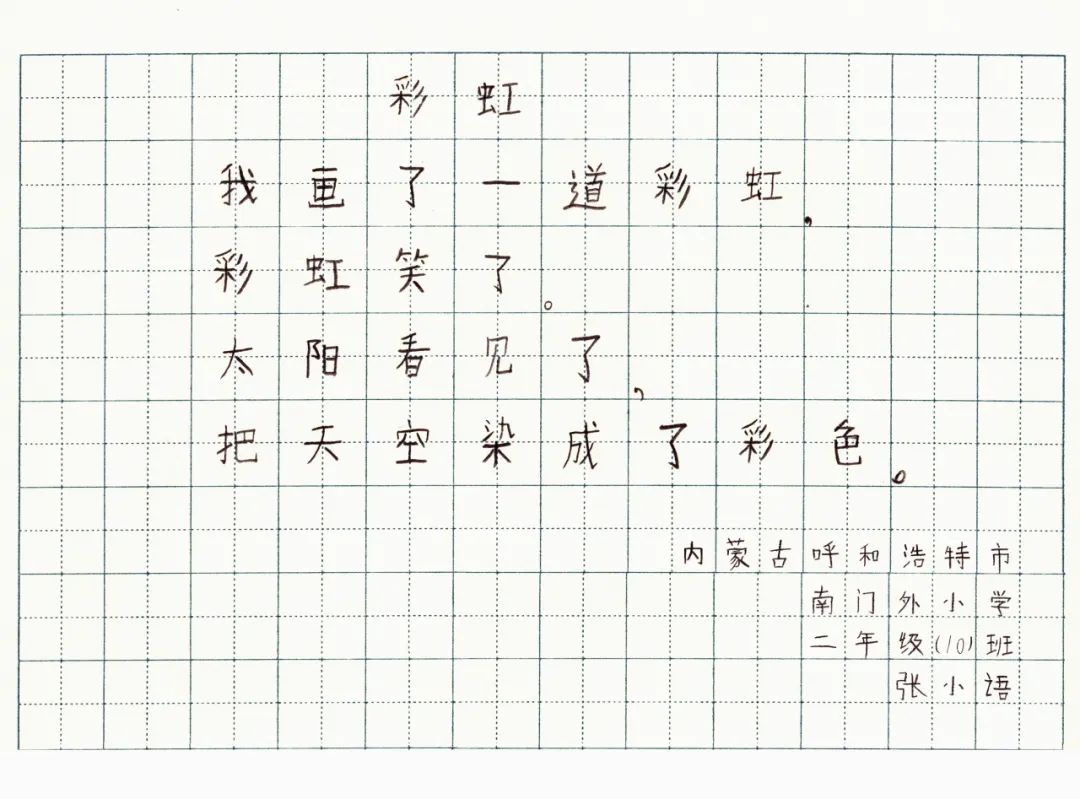 彩虹
我画了一道彩虹，
彩虹笑了。
太阳看见了，
把天空染成了彩色。
内蒙古呼和浩特市
南门外小学
二年级(10)班
张小语